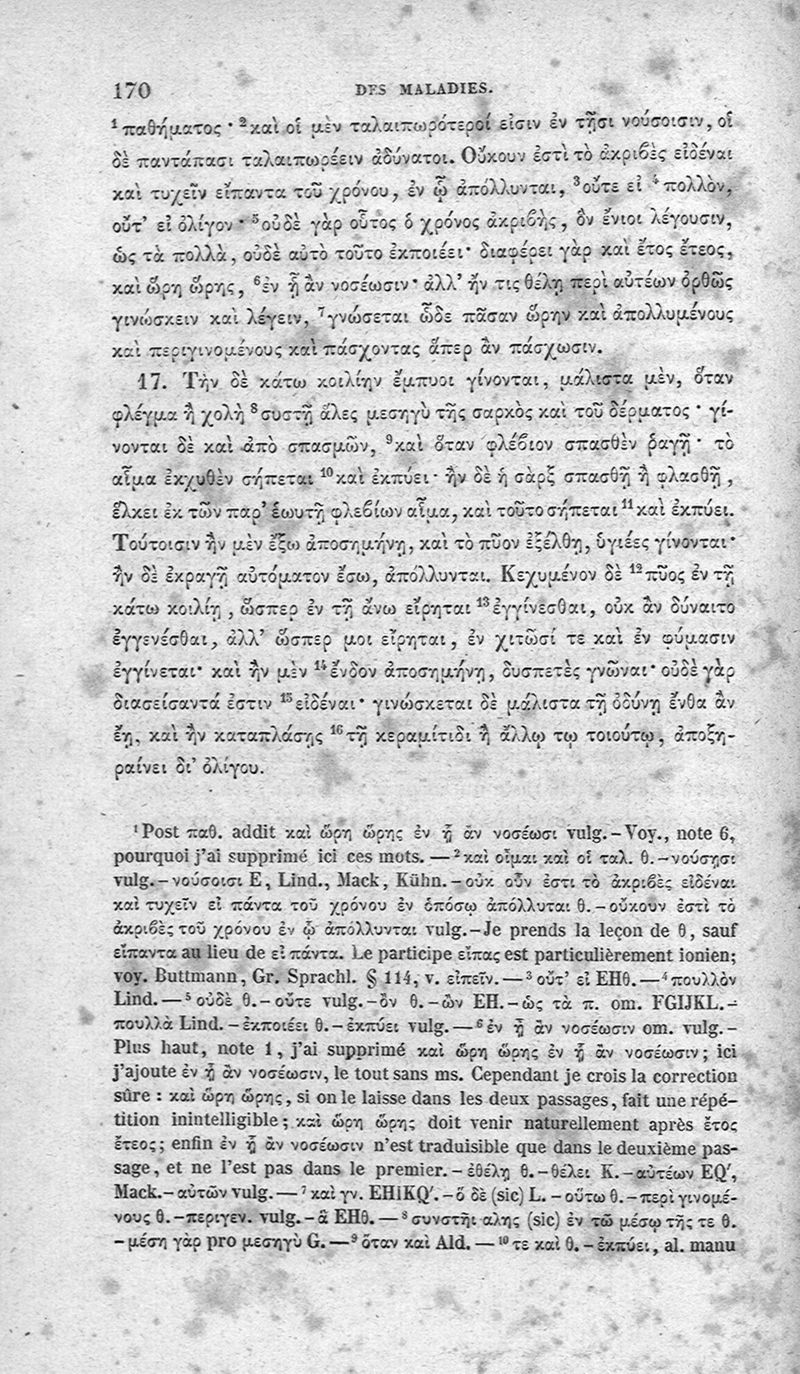 170 DES MALADIES.
¹παθήματος · ²καὶ οἱ μὲν ταλαιπωρότεροί εἰσιν ἐν τῇσι νούσοισιν, οἱ
δὲ παντάπασι ταλαιπωρέειν ἀδύνατοι. Οὔκουν ἐστὶ τὸ ἀκριϐὲς εἰδέναι
καὶ τυχεῖν εἴπαντα τοῦ χρόνου, ἐν ᾧ ἀπόλλυνται, ³οὔτε εἰ ⁴πολλὸν,
οὔτ’ εἰ ὀλίγον · ⁵οὐδὲ γὰρ οὗτος ὁ χρόνος ἀκριϐὴς, ὃν ἔνιοι λέγουσιν,
ὡς τὰ πολλὰ, οὐδὲ αὐτὸ τοῦτο ἐκποιέει· διαφέρει γὰρ καὶ ἔτος ἔτεος,
καὶ ὥρη ὥρης, ⁶ἐν ᾗ ἂν νοσέωσιν· ἀλλ’ ἤν τις θέλῃ περὶ αὐτέων ὀρθῶς
γινώσκειν καὶ λέγειν, ⁷γνώσεται ὧδε πᾶσαν ὥρην καὶ ἀπολλυμένους
καὶ περιγινομένους καὶ πάσχοντας ἅπερ ἂν πάσχωσιν.
17. Τὴν δὲ κάτω κοιλίην ἔμπυοι γίνονται, μάλιστα μὲν, ὅταν
φλέγμα ἢ χολὴ ⁸συστῇ ἅλες μεσηγὺ τῆς σαρκὸς καὶ τοῦ δέρματος · γί-
νονται δὲ καὶ ἀπὸ σπασμῶν, ⁹καὶ ὅταν φλέϐιον σπασθὲν ῥαγῇ · τὸ
αἷμα ἐκχυθὲν σήπεται ¹⁰καὶ ἐκπύει· ἢν δὲ ἡ σὰρξ σπασθῇ ἢ φλασθῇ,
ἕλκει ἐκ τῶν παρ’ ἑωυτῇ φλεϐίων αἷμα, καὶ τοῦτο σήπεται ¹¹καὶ ἐκπύει.
Τούτοισιν ἢν μὲν ἔξω ἀποσημήνῃ, καὶ τὸ πῦον ἐξέλθῃ, ὑγιέες γίνονται·
ἢν δὲ ἐκραγῇ αὐτόματον ἔσω, ἀπόλλυνται. Κεχυμένον δὲ ¹²πῦος ἐν τῇ
κάτω κοιλίῃ, ὥσπερ ἐν τῇ ἄνω εἴρηται ¹³ἐγγίνεσθαι, οὐκ ἂν δύναιτο
ἐγγενέσθαι, ἀλλ’ ὥσπερ μοι εἴρηται, ἐν χιτῶσί τε καὶ ἐν φύμασιν
ἐγγίνεται· καὶ ἢν μὲν ¹⁴ἔνδον ἀποσημήνῃ, δυσπετὲς γνῶναι· οὐδὲ γὰρ
διασείσαντά ἐστιν ¹⁵εἰδέναι· γινώσκεται δὲ μάλιστα τῇ ὀδύνῃ ἔνθα ἂν
ἔῃ, καὶ ἢν καταπλάσῃς ¹⁶τῇ κεραμίτιδι ἢ ἄλλῳ τῳ τοιούτῳ, ἀποξη-
ραίνει δι’ ὀλίγου.
¹Post παθ. addit καὶ ὥρη ὥρης ἐν ᾗ ἂν νοσέωσι vulg. – Voy., note 6,
pourquoi j’ai supprimé ici ces mots. — ²καὶ οἶμαι καὶ οἱ ταλ. θ. – νούσῃσι
vulg. – νούσοισι E, Lind., Mack, Kühn. – οὐκ οὖν ἐστι τὸ ἀκριϐὲς εἰδέναι
καὶ τυχεῖν εἰ πάντα τοῦ χρόνου ἐν ὁπόσῳ ἀπόλλυται θ. – οὔκουν ἐστὶ τὸ
ἀκριϐὲς τοῦ χρόνου ἐν ᾧ ἀπόλλυνται vulg. – Je prends la leçon de θ, sauf
εἴπαντα au lieu de εἰ πάντα. Le participe εἴπας est particulièrement ionien;
voy. Buttmann, Gr. Sprachl. § 114, v. εἰπεῖν. — ³οὔτ’ εἰ EHθ. — ⁴πουλλὸν
Lind. — ⁵οὐδὲ θ. – οὔτε vulg. – ὃν θ. – ὧν EH. – ὡς τὰ π. om. FGIJKL. –
πουλλὰ Lind. – ἐκποιέει θ. – ἐκπύει vulg. — ⁶ἐν ᾗ ἂν νοσέωσιν om. vulg. –
Plus haut, note 1, j’ai supprimé καὶ ὥρη ὥρης ἐν ᾗ ἂν νοσέωσιν; ici
j’ajoute ἐν ᾗ ἂν νοσέωσιν, le tout sans ms. Cependant je crois la correction
sûre : καὶ ὥρη ὥρης, si on le laisse dans les deux passages, fait une répé-
tition inintelligible; καὶ ὥρη ὥρης doit venir naturellement après ἔτος
ἔτεος; enfin ἐν ᾗ ἂν νοσέωσιν n’est traduisible que dans le deuxième pas-
sage, et ne l’est pas dans le premier. – ἐθέλῃ θ. – θέλει K. – αὐτέων EQ′,
Mack. – αὐτῶν vulg. — ⁷καὶ γν. EHIKQ′. – ὃ δὲ (sic) L. – οὕτω θ. – περὶ γινομέ-
νους θ. – περιγεν. vulg. – ἃ EHθ. — ⁸συνστῆι αλης (sic) ἐν τῶ μέσῳ τῆς τε θ.
– μέση γὰρ pro μεσηγὺ G. — ⁹ὅταν καὶ Ald. — ¹⁰τε καὶ θ. – ἐκπύει, al. manu